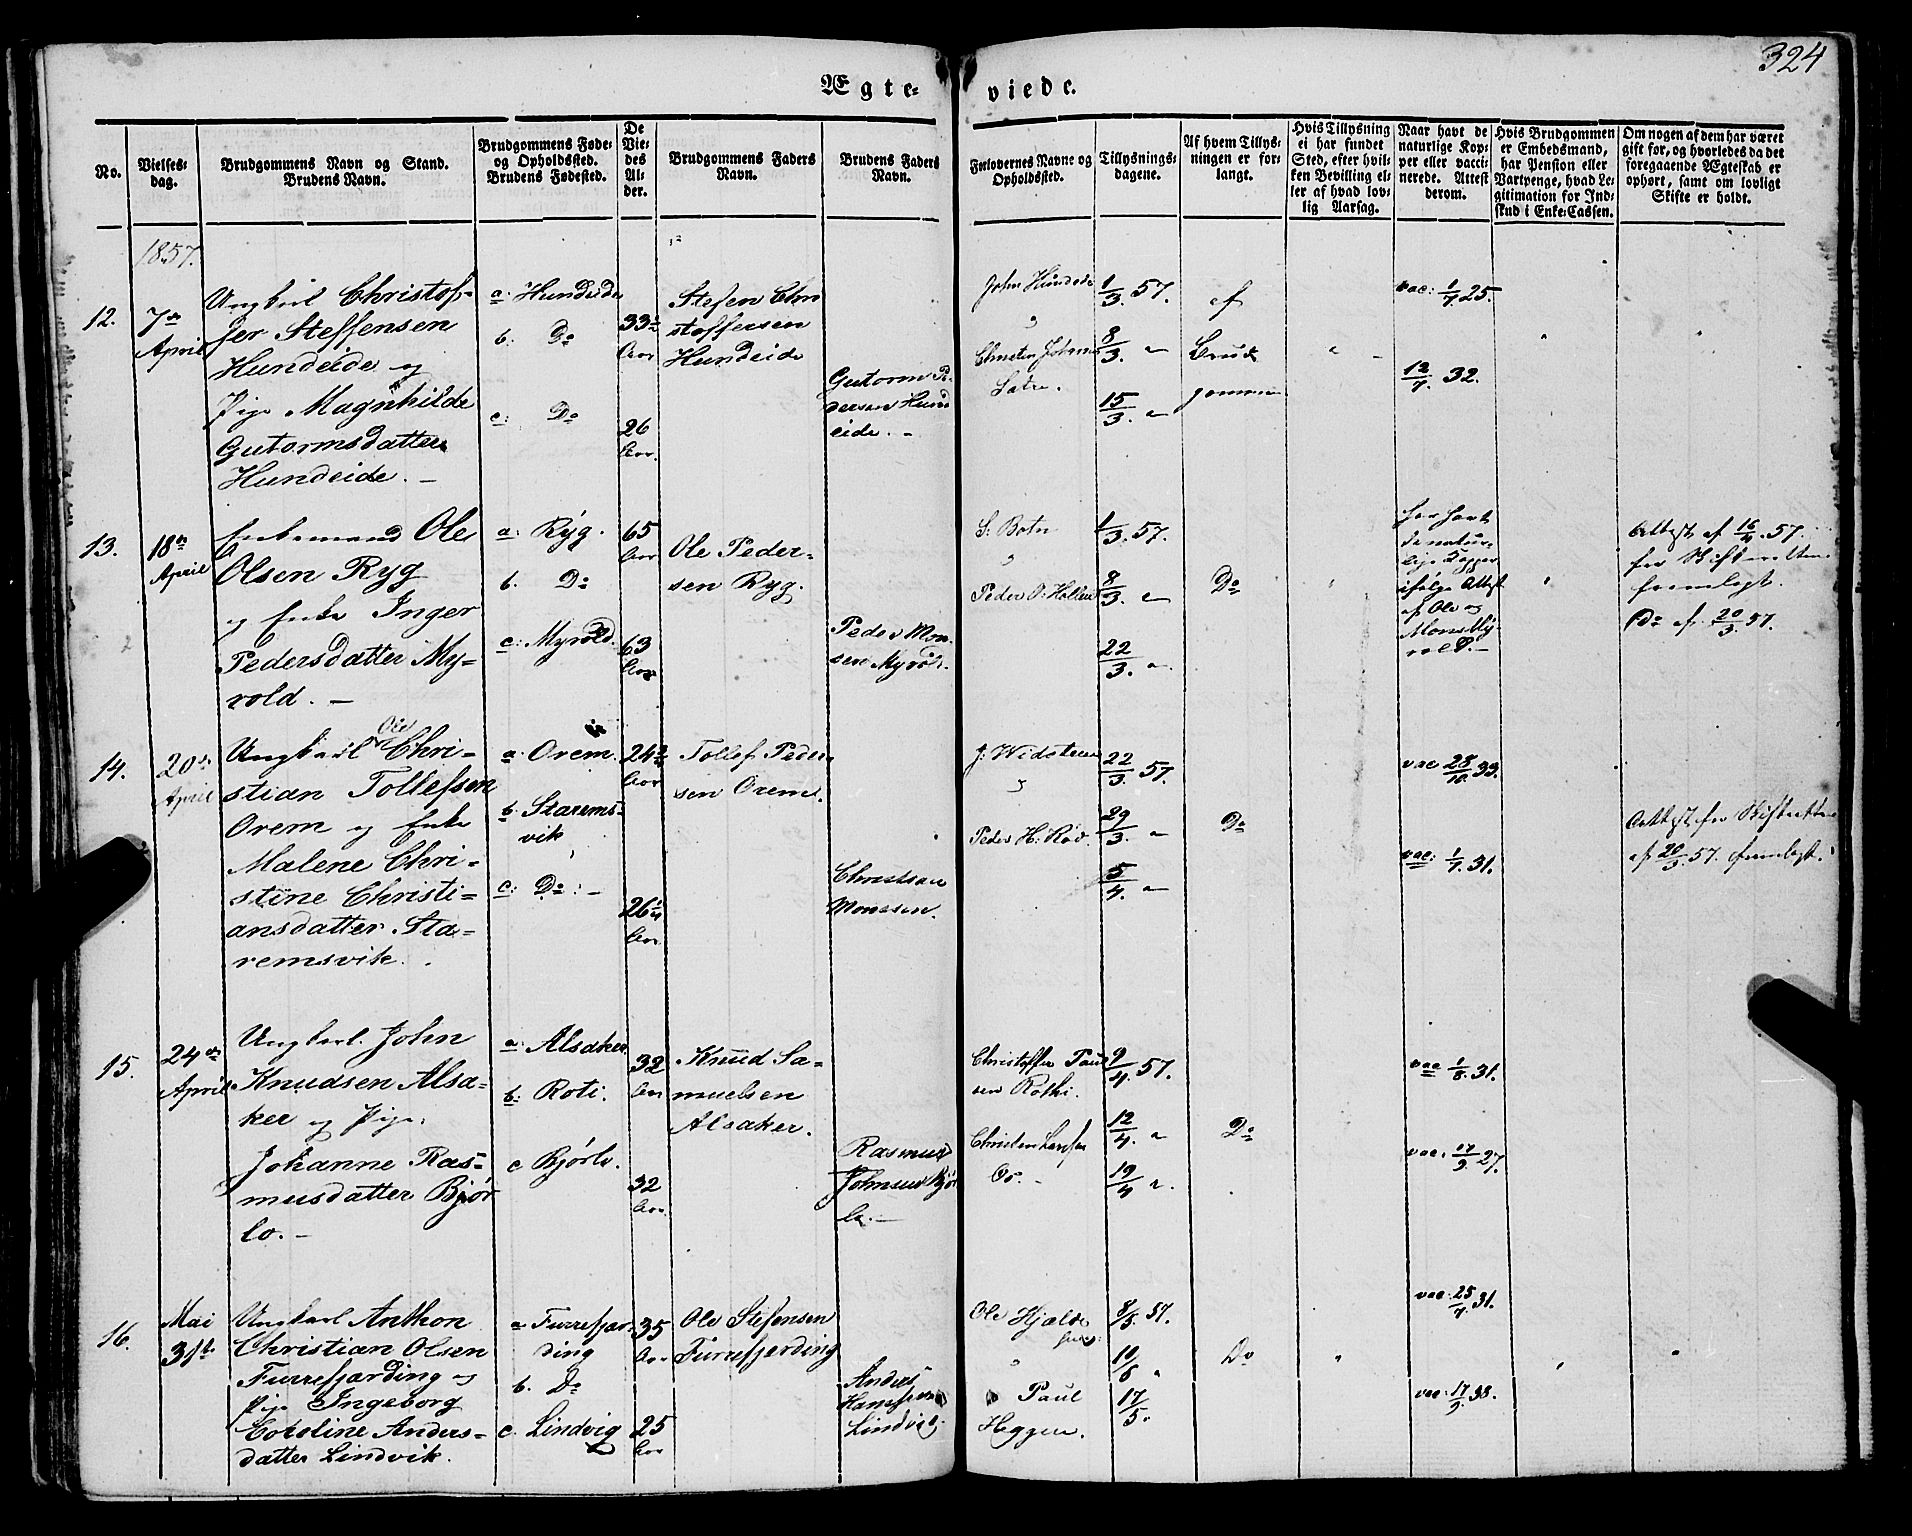 324
Ægte-
viede.
No.
Vielses-
dag.
Brudgommens Navn og Stand.
Brudens Navn.
Brudgommens Føde-
og Opholdssted.
Brudens Fødested.
De
Vie-
des
Al-
der.
Brudgommens Faders
Navn.
Brudens Faders
Navn.
Forlovernes Navne og
Opholdssted.
Tillysnings-
dagene.
Af hvem Tillys-
ningen er for-
langt.
Hvis Tillysning
ei har fundet
Sted, efter hvil-
ken Bevilling el-
ler af hvad lov-
lig Aarsag.
Naar havt de
naturlige Kop-
per eller vacci-
nerede. Attest
derom.
Hvis Brudgommen
er Embedsmand,
har Pension eller
Vartpenge, hvad Le-
gitimation for Ind-
skud i Enke-Cassen.
Om nogen af dem har været
gift før, og hvorledes da det
foregaaende Ægteskab er
ophørt, samt om lovligt
Skifte er holdt.
1857.
12.
7de
April
Ungkarl Christof-
fer Steffensen
Hundeide og
Pige Magnhilde
Gutormsdatter
Hundeide. -
a: Hundeide
b: Do
c: Do
33½
Aar
26
Aar.
Stefen Chri
stoffersen
Hundeide
Gutorm Pe-
dersen Hund
eide. -
John Hundeide
Christen Johann
Satre.
1/3. 57.
8/3. "
15/3. "
af
Brud
gommen
vac: 1/7 25.
12/7. 32.
13.
18de
April
Enkemand Ole
Olsen Ryg
og Enke Inger
Pedersdatter My-
rold. -
a: Ryg.
b. Do
c: Myrold.
65
Aar
63
Aar
Ole Peder-
sen Ryg.
Peder Mon-
sen Myrold.
S: Botn
Peder O: Hollen
1/3. 57.
8/3. "
22/3. "
Do
har havt
de natur-
lige Kopper
ifølge Attest
af Ole og
Mons My-
rold. -
Attest af 16/4. 57.
fra Skifteretten
fremlagt.
Do af 20/3. 57.
14.
20de
April
Ole
Ungkarl Chri-
stian Tollefsen
Orem og Enke
Malene Chri-
stine Christi-
ansdatter Sta-
remsvik.
a. Orem.
b. Starems-
vik
c: Do: -
24½
Aar
26¼
Aar
Tollef Peder-
sen Orem.
Christian
Monssen.
J: Widsteen
Peder H: Rød.
22/3. 57.
29/3. "
5/4. "
Do
vac 28/10. 33.
vac: 1/7. 31.
Attest fra Skifteretten
af 20/3. 57. fremlagt.
15.
24de
April
Ungkarl. John
Knudsen Alsa-
ker og Pige.
Johanne Ras-
musdatter Bjør
lo. -
a: Alsaker
b: Roti.
c Bjørlo.
32
Aar
32
Aar
Knud Sa-
muelsen
Alsaker.
Rasmus
Johnsen Bjør
lo. -
Christoffer Paul
sen Rothi.
Christen Larsen
Os. -
9/4. 57.
12/4. "
19/4 ".
Do
vac 1/8. 31.
vac: 17/9. 27.
16.
Mai
31te
Ungkarl Anthon
Christian Olsen
Furrefjærding og
Pige Ingeborg
Caroline Anders-
datter Lindvik.
a Furrefjær-
ding
b. Do
c. Lindvig
35
Aar
25
Aar
Ole Stefensen
Furrefjerding
Anders
Hanssen
Lindvig.
Ole Hjelde
Paul
Heggen.
8/5. 57.
10/5 "
17/5.
Do
vac. 25/7. 31.
vac: 17/9. 38.